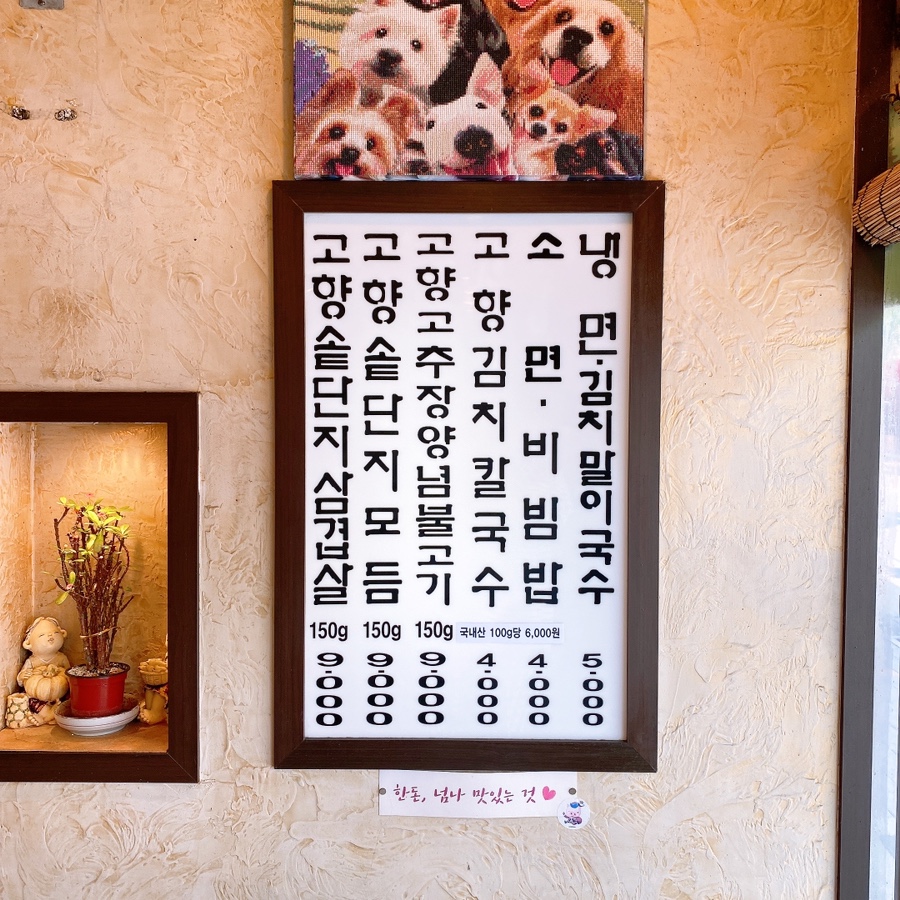 고향솥단지삼겹살 150g 9.000
고향솥단지모듬 150g 9.000
고향고추장양념불고기 150g 9.000
고향김치칼국수 4.000
소면·비빔밥 4.000
냉면·김치말이국수 5.000
국내산 100g당 6,000원
한돈, 넘나 맛있는 것